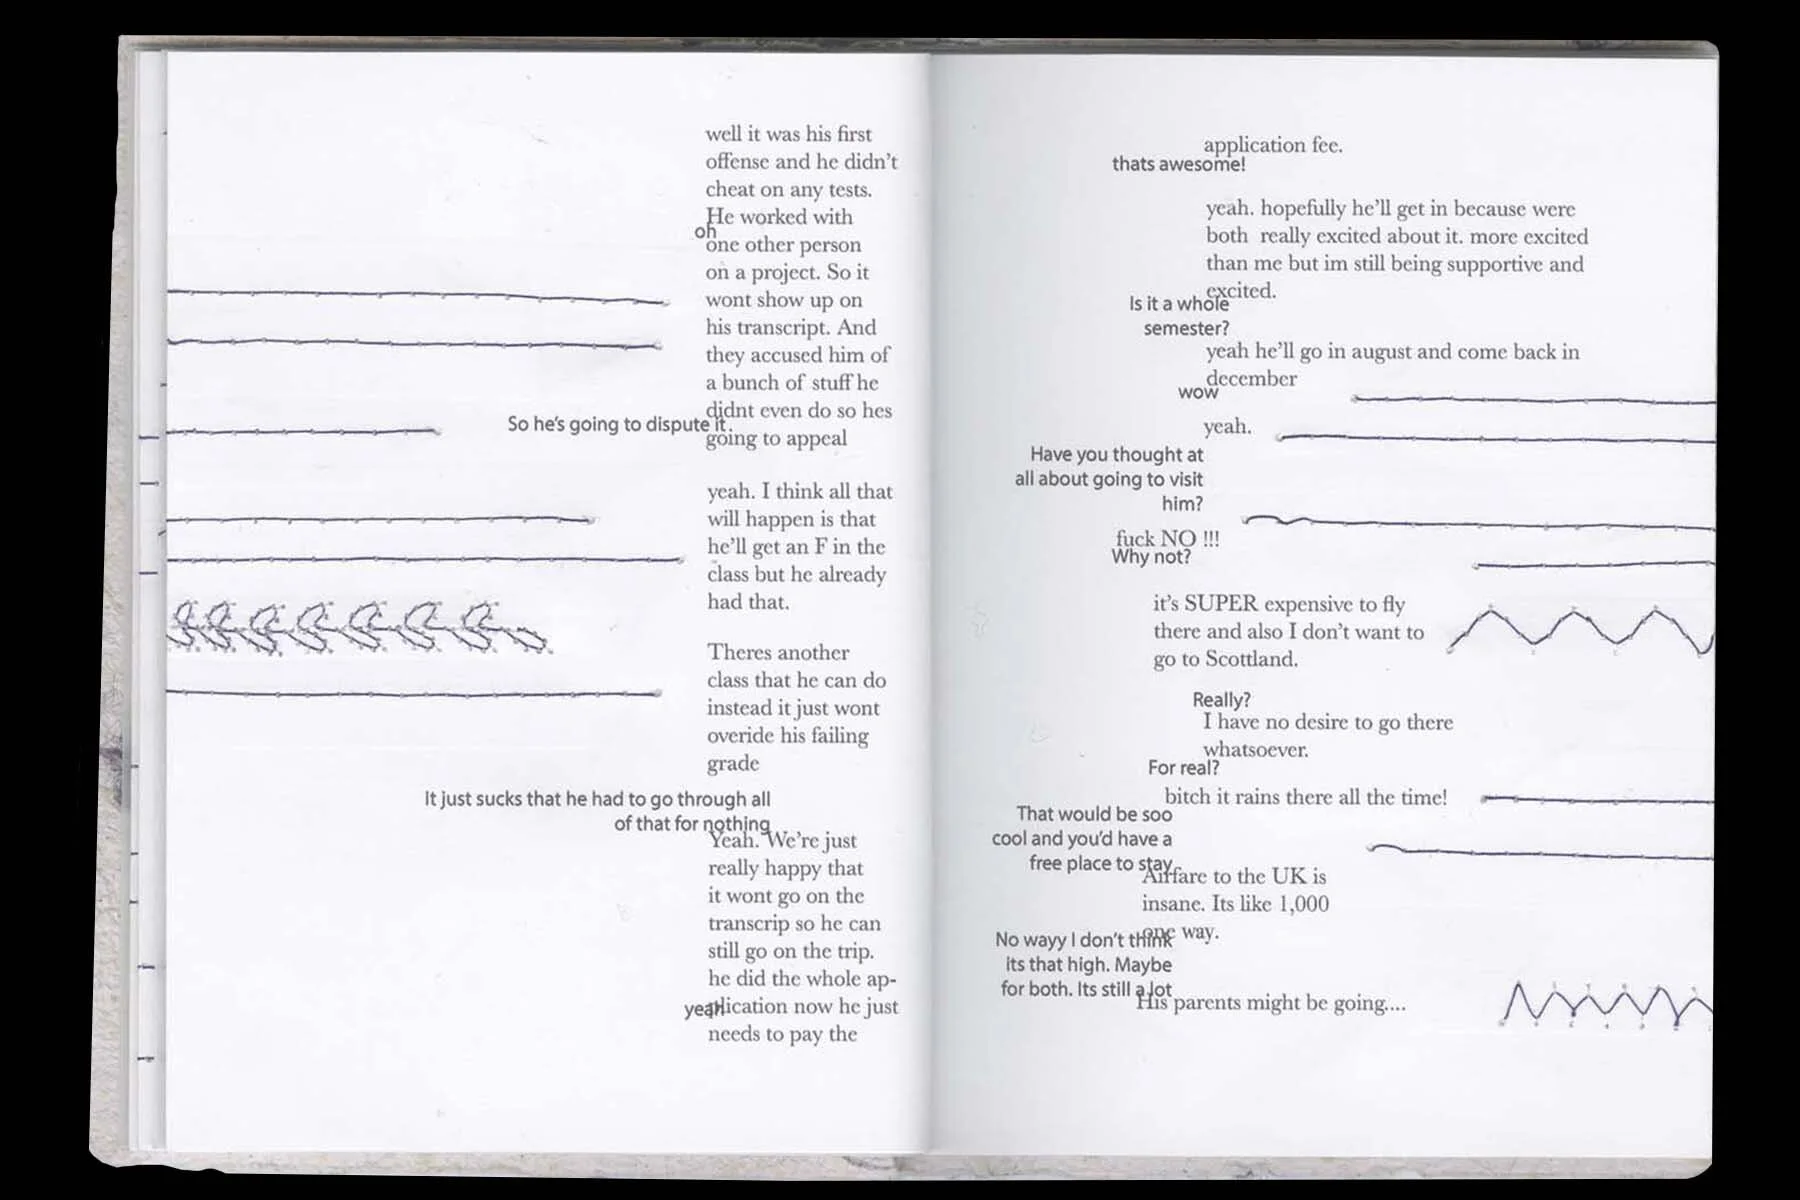 well it was his first
offense and he didn't
cheat on any tests.
He worked with
oh
one other person
on a project. So it
wont show up on
his transcript. And
they accused him of
a bunch of stuff he
didnt even do so hes
So he's going to dispute it.
going to appeal
yeah. I think all that
will happen is that
he'll get an F in the
class but he already
had that.
Theres another
class that he can do
instead it just wont
overide his failing
grade
It just sucks that he had to go through all
of that for nothing
Yeah. We're just
really happy that
it wont go on the
transcrip so he can
still go on the trip.
he did the whole ap-
yeah
plication now he just
needs to pay the
application fee.
thats awesome!
yeah. hopefully he'll get in because were
both really excited about it. more excited
than me but im still being supportive and
excited.
Is it a whole
semester?
yeah he'll go in august and come back in
december
wow
yeah.
Have you thought at
all about going to visit
him?
fuck NO !!!
Why not?
it's SUPER expensive to fly
there and also I don't want to
go to Scottland.
Really?
I have no desire to go there
whatsoever.
For real?
bitch it rains there all the time!
That would be soo
cool and you'd have a
free place to stay
Airfare to the UK is
insane. Its like 1,000
one way.
No wayy I don't think
Its that high. Maybe
for both. Its still a lot
His parents might be going....